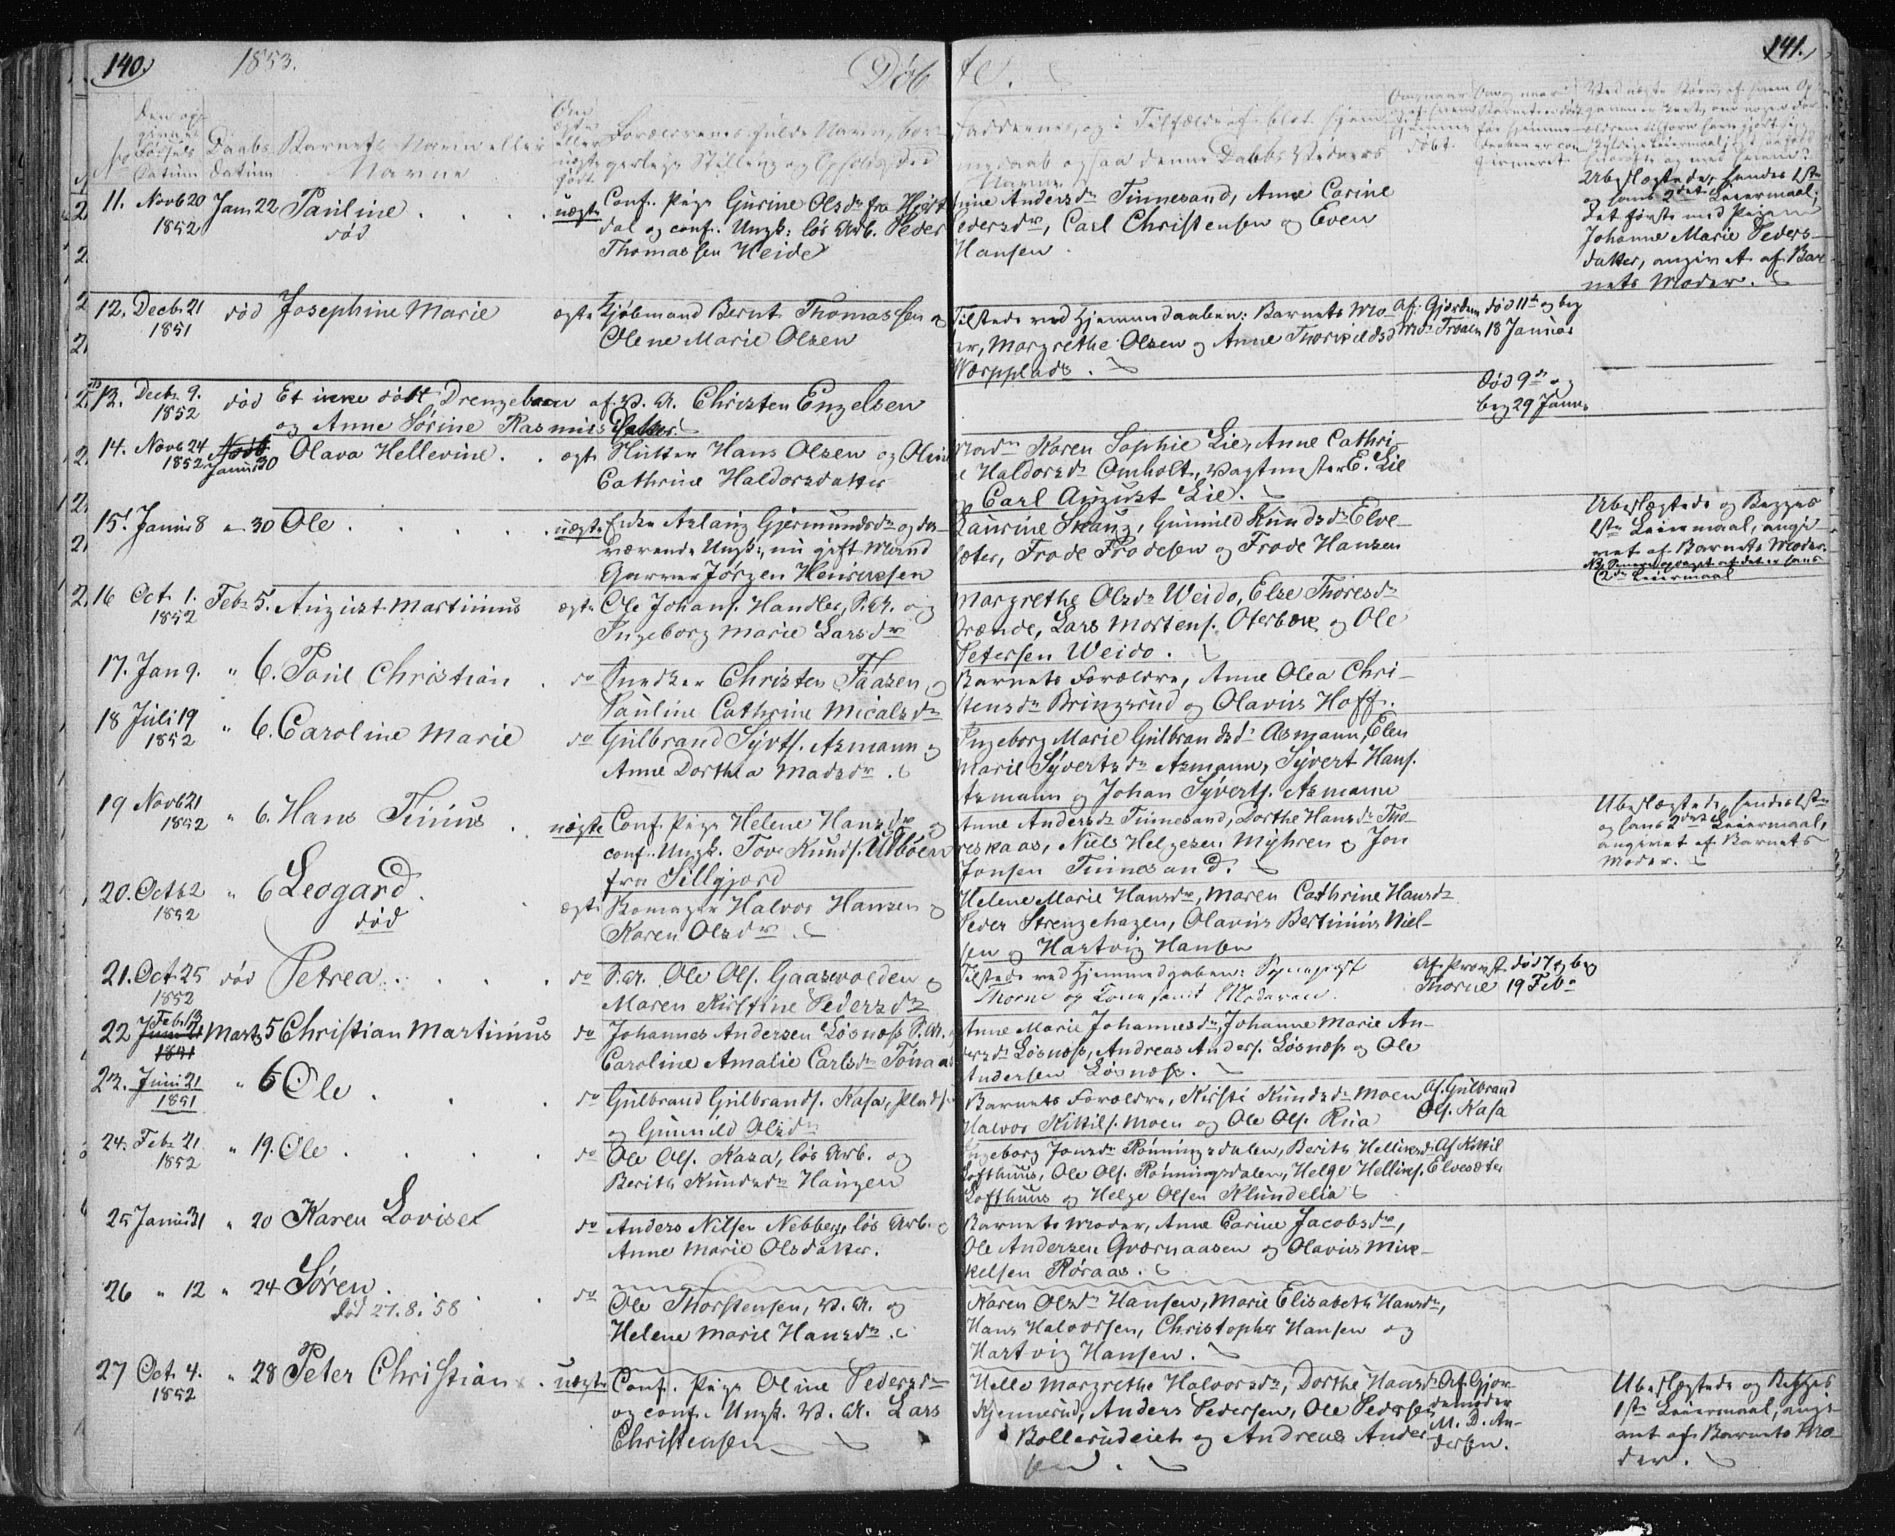 140. 1853. Døbte. 141.
No Datum Daabs Datum Barnets Navn eller Navne
11. Novb 20 1852 Janu 22 Pauline død uægte Conf. Pige Gurine Olsdr fra
dal og conf. Ungk: løs Arb. Peder
Thomassen Heide
Anne Andersdr Tinnesand, Anne Carine
Pedersdr, Carl Christensen og Even
Hansen
Ubeslægtede, hendes 1ste
og hans 2det Leiermaal;
det første med Pigen
Johanne Marie Peders-
datter, angivet af Bar-
nets Moder.
12. Decb. 21 1851 død Josephine Marie ægte Kjøbmand Bernt Thomassen og
Olene Marie Olsen
Tilstede ved Hjemmedaaben: Barnets Mo-
er, Margrethe Olsen og Anne
Værpplads.
Af Gjordem
Mdm Troaen
død 11te og beg
18 Januar
13. Decb. 9. 1852 død Et ikke døbt Drengebarn af P. A. Christen Engelsen
og Anne Sørine Rasmusdatter.
død 9de og
beg 29 Janu.
14. Novb 24 1852 Janu 30 Olava Hellevine. ægte Hans Olsen og
Cathrine Haldorsdatter
Madm Karen Sophie Lie, Anne Cathri-
e Haldorsdr Omholt, Vagtmester E. Lie
og Carl August Lie.
15. Janu 8 " 30 Ole. uægte Enke Aslaug Gjermundsdr og da-
værende Ungk:, nu gift Mand
Garver Jørgen Henriksen
Laurine Skaug, Gunnild Knudsdr Elve-
sæter, Frode Frodesen og Frode Hansen
Ubeslægtede og Begges
1ste Leiermaal, angi-
vet af Barnets Moder.
NB. Senere opgivet at det er hans
2det Leiermaal
16 Oct. 1. 1852 Feb. 5. August Martinius ægte Ole Johans. Handler, P. A. og
Ingeborg Marie Larsdr
Margrethe Olsdr Weido, Else Thoresdr
Trænde, Lars Mortens. Oterbæk og Ole
Petersen Weido.
17. Jan 9. " 6. Poul Christian. do Snedker Christen Faasen og
Pauline Cathrine Micalsdr
Barnets Forældre, Anne Olea Chri-
stensdr Bringsrud og Olavus Hoff.
18 Juli 19 1852 " 6. Caroline Marie do Gulbrand Syvts. Asmann og
Anne Dorthea Madsdr.
Ingeborg Marie Gulbrandsdr Asmann, Elen
Marie Syvertsdr Asmann, Syvert Hans.
Asmann og Johan Syverts. Asmann
19 Novb 21 1852 " 6. Hans Tinius. uægte Conf. Pige Helene Hansdr og
conf. Ungk. Tove Knuds. Ulbøen
fra Sillgjord
Anne Andersdr Tinnesand, Dorthe Hansdr Tho-
reskaas, Niels Helgesen Myhren og Jon
Jonsen Tinnesand.
Ubeslægtede, hendes 1ste
og hans 2det Leiermaal,
angivet af Barnets
Moder.
20. Octb 2 1852 " 6 Leogard. død ægte Romager Halvor Hansen og
Karen Olsdr.
Helene Marie Hansdr, Maren Cathrine Hansdr
Peder Strengehagen, Olavus Bertinius Niel-
sen og Hartvig Hansen
21. Oct. 25 1852 død Petrea. do P. A. Ole Ols. Gaasevolden og
Maren Kirstine Pedersdr
Tilstede ved Hjemmedaaben: Sognepræst
Thorne og Kone samt Moderen.
Af Provst
Thorne
død 7 og beg
19 Feb.
22 Feb. 13 Marts 5 Christian Martinius do Johannes Andersen Løsnæss P. A.
Caroline Amalie Carlsdr Tønaas
Anne Marie Johannesdr, Johanne Marie An-
dersdr Løsnæss, Andreas Anders. Løsnæss og Ole
Andersen Løsnæss.
23. Juni 21 1851 " 5 Ole. do Gulbrand Gulbrands. Kasa, Plads
og Gunnild Olsdr
Barnets Forældre, Kirsti Knudsdr Moen
Halvor Kittils. Moen og Ole Ols. Rua
Af. Gulbrand
Ols. Kasa
24. Feb. 21 1852 " 19. Ole. do Ole Ols. Kasa, løs Arb. og
Berith Knudsdr Haugen
Ingeborg Jonsdr Rønningsdalen, Berith Helliksdr
Lofthuus, Ole Ols. Rønningsdalen, Helge Helliks.
Lofthuus og Helge Olsen Klundelia
Af Kittil
Elvesæter
25 Janu 31 " 20 Karen Lovise do Anders Nilsen Nebberg, løs Arb. og
Anne Marie Olsdatter.
Barnets Moder, Anne Carine Jacobsdr,
Ole Andersen Qværnaasen og Olavus Mik-
kelsen Røraas.
26 " 12 " 24 Søren. død 27.8.58 do Ole Thorstensen, P. A. og
Helene Marie Hansdr.
Karen Olsdr Hansen, Marie Elisabeth Hansdr,
Hans Halvorsen, Christopher Hansen og
Hartvig Hansen.
27 Oct. 4. 1852 " 28 Peter Christian. uægte Conf. Pige Oline Pedersdr
og conf. Ungk. P. A. Lars
Christensen
Helle Margrethe Halvorsdr, Dorthe Hansdr
Kjennerud, Anders Pedersen, Ole Pedersen
Bollerudeiet og Andreas Ander
sen.
Af. Gjor-
demoder
M. D. An-
dersen.
Ubeslægtede og Begges
1ste Leiermaal, angi-
vet af Barnets Mo-
der.